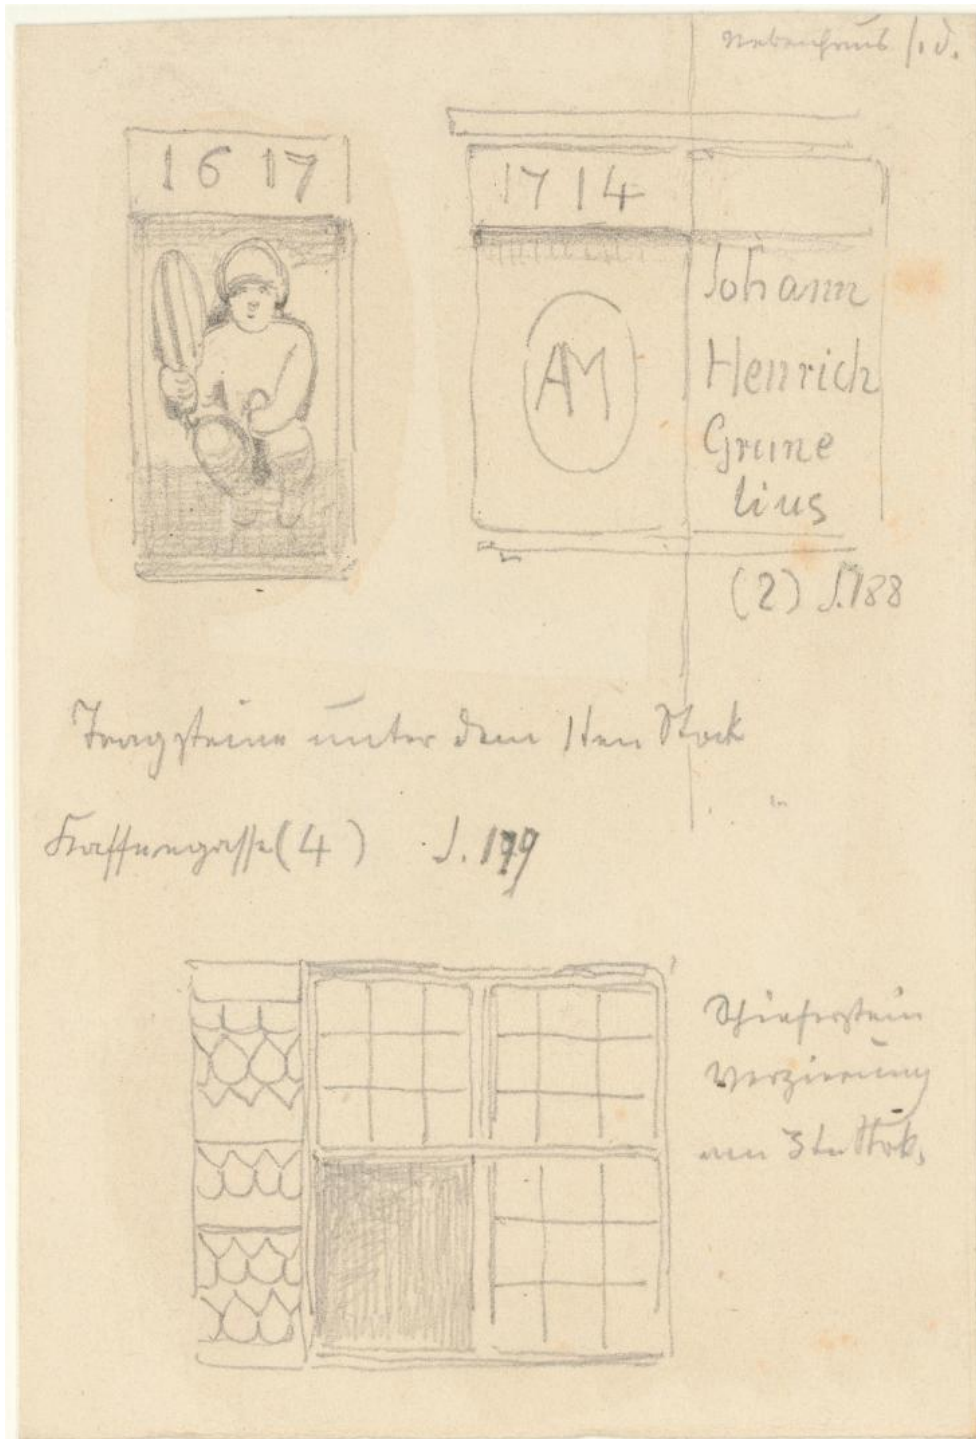 Nebenhaus
1617
1714
AM
Johann
Henrich
Grune
lius
(2) S. 188
Tragsteine unter dem 1ten Stock
(4) S. 199
Schieferstein
Verzierung
am 3ten Stock.